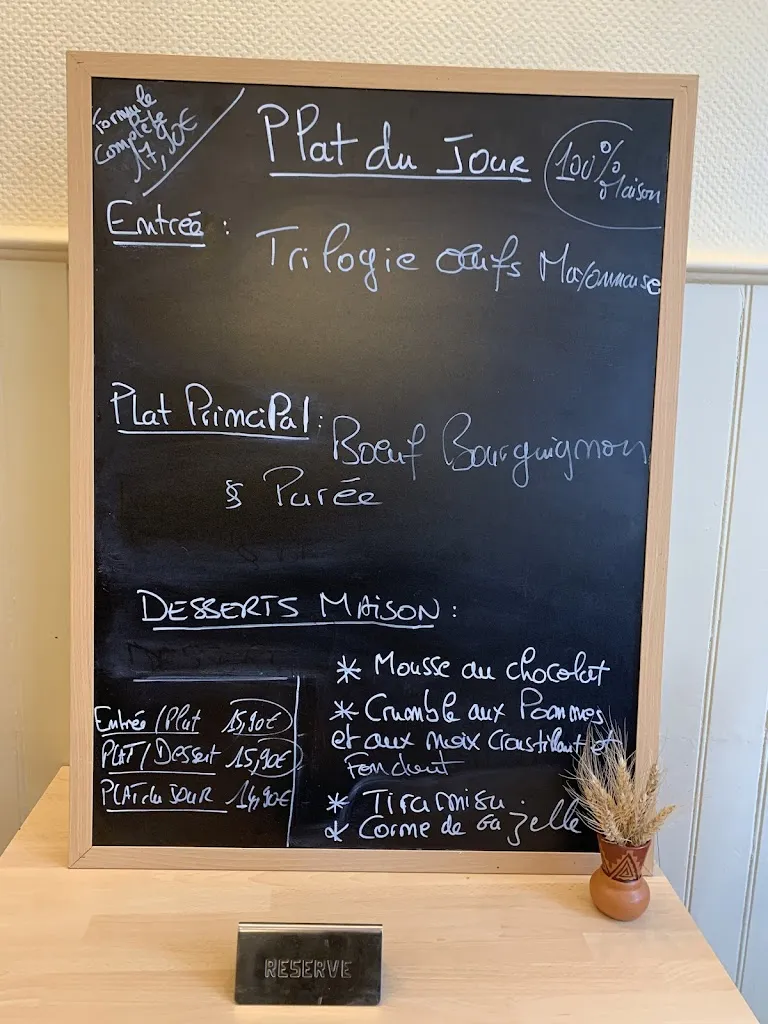 Formule
complète
17,90€
Plat du Jour
100%
Maison
Entrée :
Trilogie œufs Mayonnaise
Plat Principal :
Bœuf Bourguignon
§ Purée
DESSERTS MAISON :
* Mousse au chocolat
* Crumble aux Pommes
et aux noix Croustillant et
Fondant
* Tiramisu.
* Corme de Gazelle
Entrée/Plat 15,90€
PLAT/Dessert 15,90€
PLAT du JOUR 14,90€
RESERVE